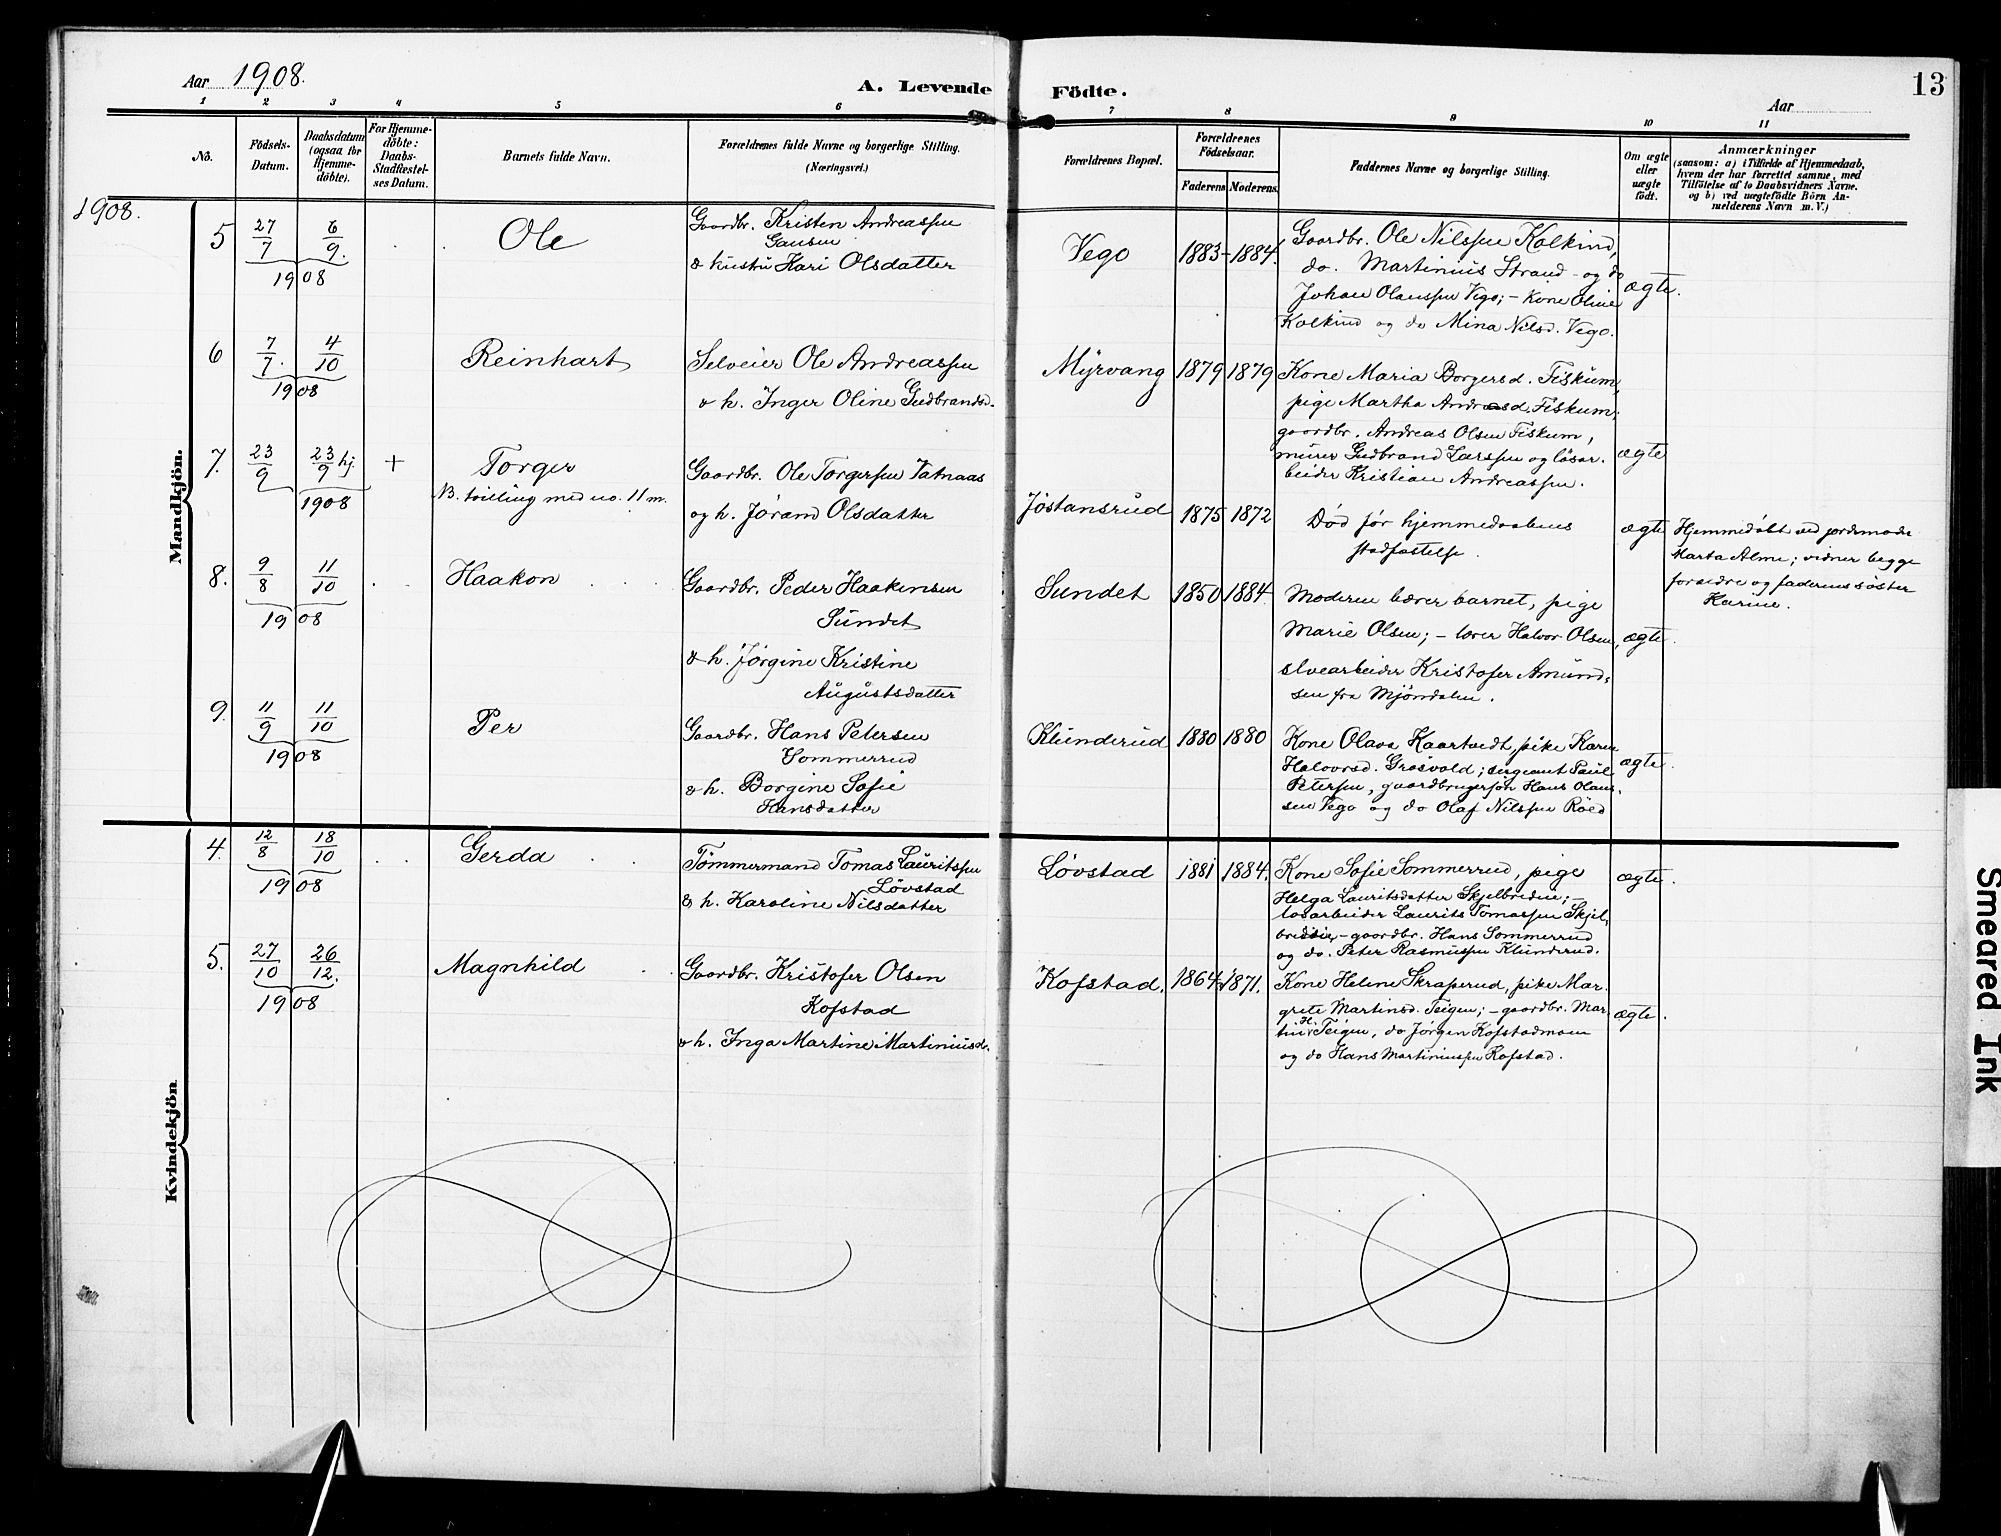 Aar 1908.
A. Levende Födte.
Aar
13
1 2 3 4 5 6 7 8 9 10 11
No.
Födsels-
Datum.
Daabsdatum
(ogsaa for
Hjemme-
döbte).
For Hjemme-
döbte:
Daabs-
Stadfæstel-
ses Datum.
Barnets fulde Navn.
Forældrenes fulde Navne og borgerlige Stilling.
(Næringsvei.)
Forældrenes Bopæl.
Forældrenes
Födselsaar.
Faderens Moderens.
Faddernes Navne og borgerlige Stilling.
Om ægte
eller
uægte
födt.
Anmærkninger
(saasom: a) i Tilfælde af Hjemmedaab,
hvem der har forrettet samme, med
Tilföielse af to Daabsvidners Navne.
og b) ved uægtefödte Börn An-
melderens Navn m.V.)
1908.
Mandkjön.
5 27/7 6/9. 1908
Ole
Gaardbr. Kristen Andreassen
Gausen
& hustru Kari Olsdatter
Vego 1883 - 1884.
Gaardbr. Ole Nilssen Kolkind,
do. Martinius Strand - og do
Johan Olaussen Vego; - Kone Oline
Kolkind og do Mina Nilsd. Vego.
ægte.
6 7/7. 4/10 1908
Reinhart
Selveier Ole Andreassen
& h. Inger Oline Gudbrandsd.
Myrvang 1879 1879
Kone Maria Borgersd. Fiskum,
pige Martha Andreasd. Fiskum;
gaardbr. Andreas Olsen Fiskum,
murer Gudbrand Larssen og løsar-
beider Kristian Andreassen.
ægte
7. 23/9 23/9 hj. 1908 +
Torger
NB. tvilling med no. 11 m.
Gaardbr. Ole Torgersen Tatnaas
og h. Jørand Olsdatter
Jøstansrud 1875 1872
Død før hjemmedaabens
stadfæstelse.
ægte
Hjemmedøbt ved jordemoder
Marta Alme; vidner begge
foreldre og faderens søster
Karine.
8. 9/8 11/10 1908
Haakon
Gaardbr. Peder Haakensen
Sundet
& h. Jørgine Kristine
Augustsdatter
Sundet 1850 1884.
Moderen bærer barnet, pige
Marie Olsen; - lærer Halvor Olsen,
elvearbeider Kristofer Amund-
sen fra Mjøndalen.
ægte.
9. 11/9 11/10 1908
Per
Gaardbr. Hans Petersen
Sommerrud
& h. Borgine Sofie
Hansdatter
Klunderud 1880 1880
Kone Olava Kaartvedt, pike Karen
Halvorsd. Grosvold; sergeant Paul
Petersen, gaardbrugersøn Hans Olaus-
sen Vego og do Olaf Nilssen Røed
ægte.
Kvindekjön
4. 12/8 18/10 1908
Gerda
Tømmermand Tomas Lauritssen
Løvstad
& h. Karoline Nilsdatter
Løvstad 1881 1884.
Kone Sofie Sommerrud, pige
Helga Lauritsdatter Skjelbredeie; -
løsarbeider Laurits Tomassen Skjel-
bredeie, - gaardbr. Hans Sommerrud
og do. Peter Rasmussen Klunderud.
ægte.
5. 27/10 26/12. 1908
Magnhild
Gaardbr. Kristofer Olsen
Kofstad
& h. Inga Martine Martiniusd.
Kofstad. 1864 1871.
Kone Helene Skraperud, pike Mar-
grete Martinsd. Teigen; - gaardbr. Mar-
tin H. Teigen, do Jørgen Kofstadmoen
og do Hans Martiniussen Kofstad.
ægte.
Smeared Ink